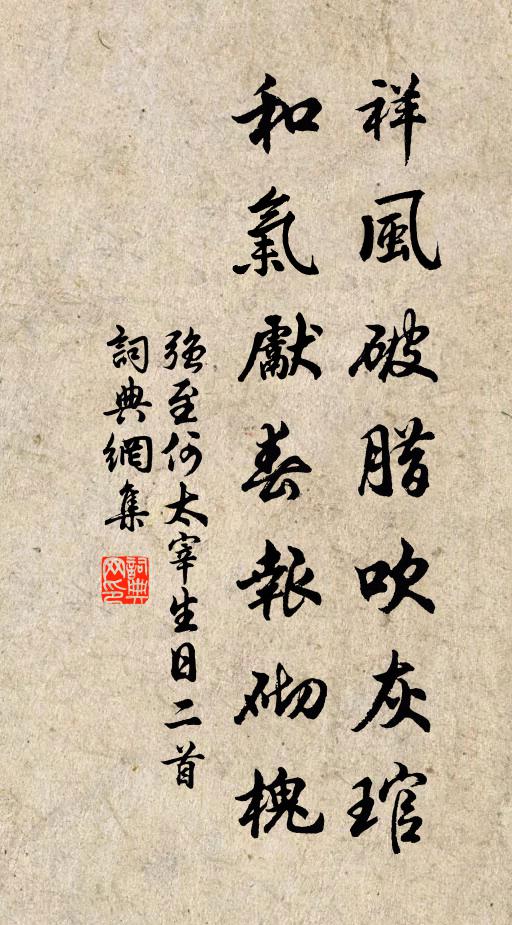 祥風破腊吹灰琯
和氣獻春報砌槐
強至何太宰生日二首
詞典網集
詞典网印